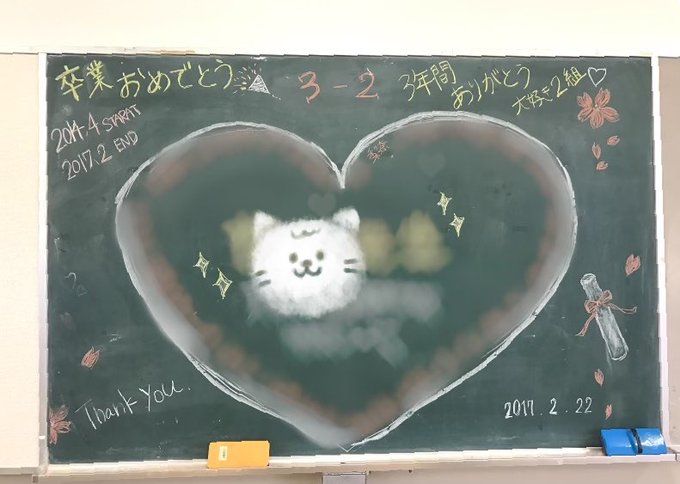 卒業おめでとう
3-2
3年間
ありがとう
大好き2組♡
2014.4 STARAT
2017.2 END
Thank you.
2017.2.22